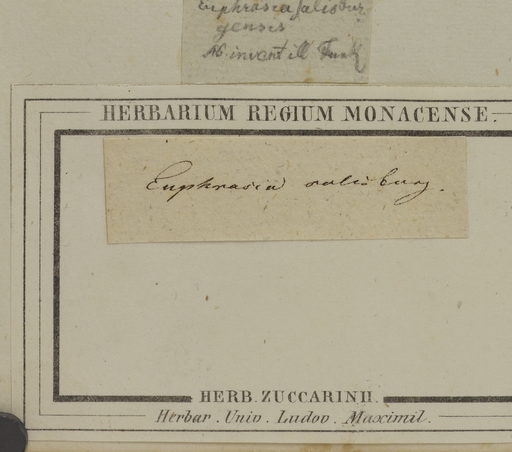 Euphrasia salisbur
gensis
invent ill Funk
HERBARIUM REGIUM MONACENSE.
Euphrasia salisburg.
HERB. ZUCCARINII.
Herbar. Univ. Ludov. Maximil.